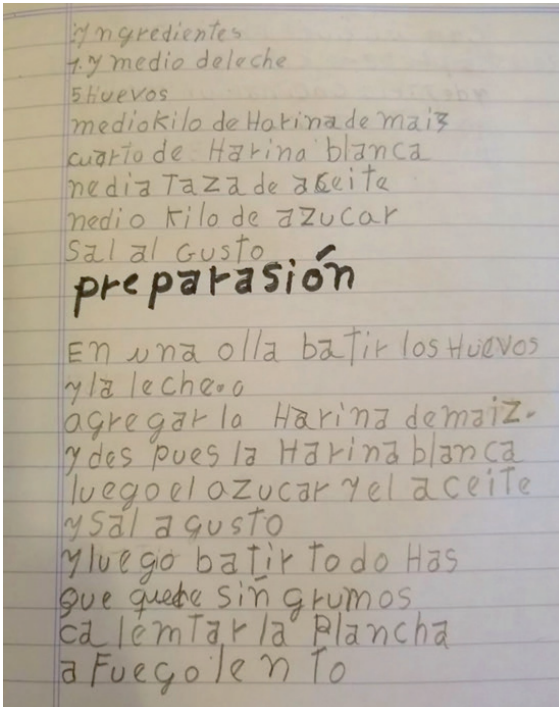 yngredientes
1.y medio deleche
5Huevos
mediokilo de Harina de maiz
cuarto de Harina blanca
media Taza de aceite
medio kilo de azucar
Sal al Gusto
preparasión
En una olla batir los Huevos
y la leche.o
agregar la Harina demaiz.
y des pues la Harina blanca
luego el azucar y el aceite
y Sal a gusto
y luego batir todo Has
que quede sin grumos
calemtar la plancha
a Fuego lento